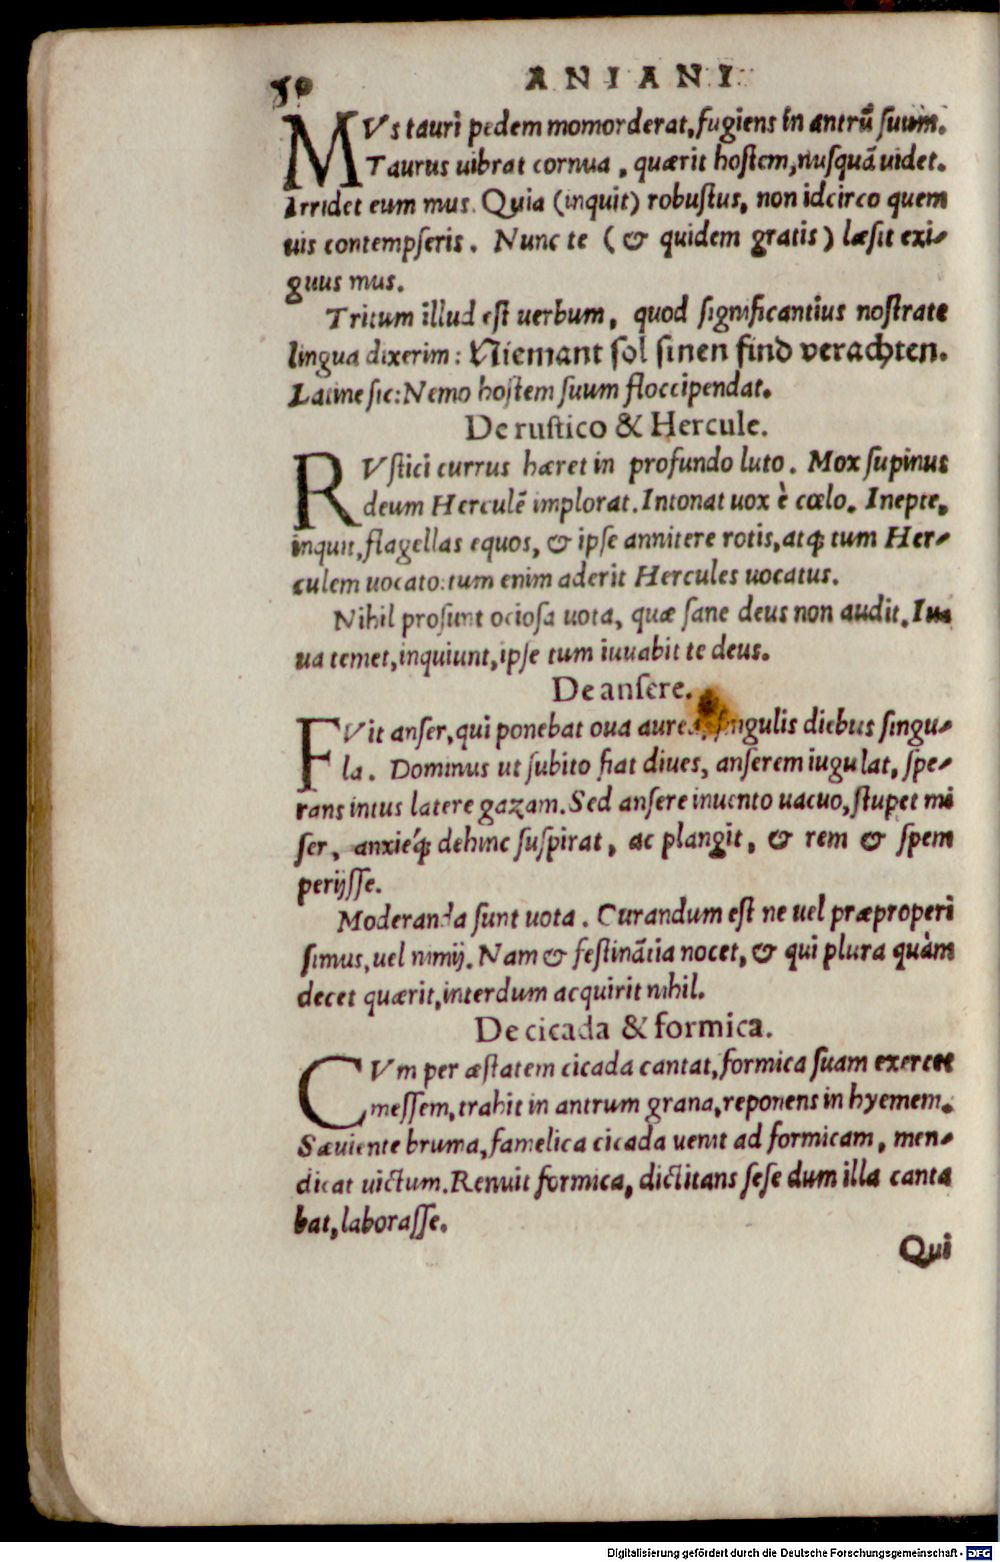 50
ANIANI
MVs tauri pedem momorderat, fugiens in antrũ suum.
Taurus uibrat cornua, quærit hostem, nusquã uidet.
Irridet eum mus. Quia (inquit) robustus, non idcirco quem
uis contempseris. Nunc te (& quidem gratis) læsit exi-
guus mus.
Tritum illud est uerbum, quod significantius nostrate
lingua dixerim: Niemant sol sinen find verachten.
Latine sic: Nemo hostem suum floccipendat.
De rustico & Hercule.
RVstici currus hæret in profundo luto. Mox supinus
deum Herculẽ implorat. Intonat uox è cœlo. Inepte,
inquit, flagellas equos, & ipse annitere rotis, atq; tum Her-
culem uocato: tum enim aderit Hercules uocatus.
Nihil prosunt ociosa uota, quæ sane deus non audit. Iu
ua temet, inquiunt, ipse tum iuuabit te deus.
De ansere.
FVit anser, qui ponebat oua aurea, singulis diebus singu-
la. Dominus ut subito fiat diues, anserem iugulat, spe-
rans intus latere gazam. Sed ansere inuento uacuo, stupet mi
ser, anxieq́; dehinc suspirat, ac plangit, & rem & spem
perijsse.
Moderanda sunt uota. Curandum est ne uel præproperi
simus, uel nimij. Nam & festinãtia nocet, & qui plura quàm
decet quærit, interdum acquirit nihil.
De cicada & formica.
CVm per æstatem cicada cantat, formica suam exercet
messem, trahit in antrum grana, reponens in hyemem.
Sæuiente bruma, famelica cicada uenit ad formicam, men-
dicat uictum. Renuit formica, dictitans sese dum illa canta
bat, laborasse.
Qui
Digitalisierung gefördert durch die Deutsche Forschungsgemeinschaft - DFG